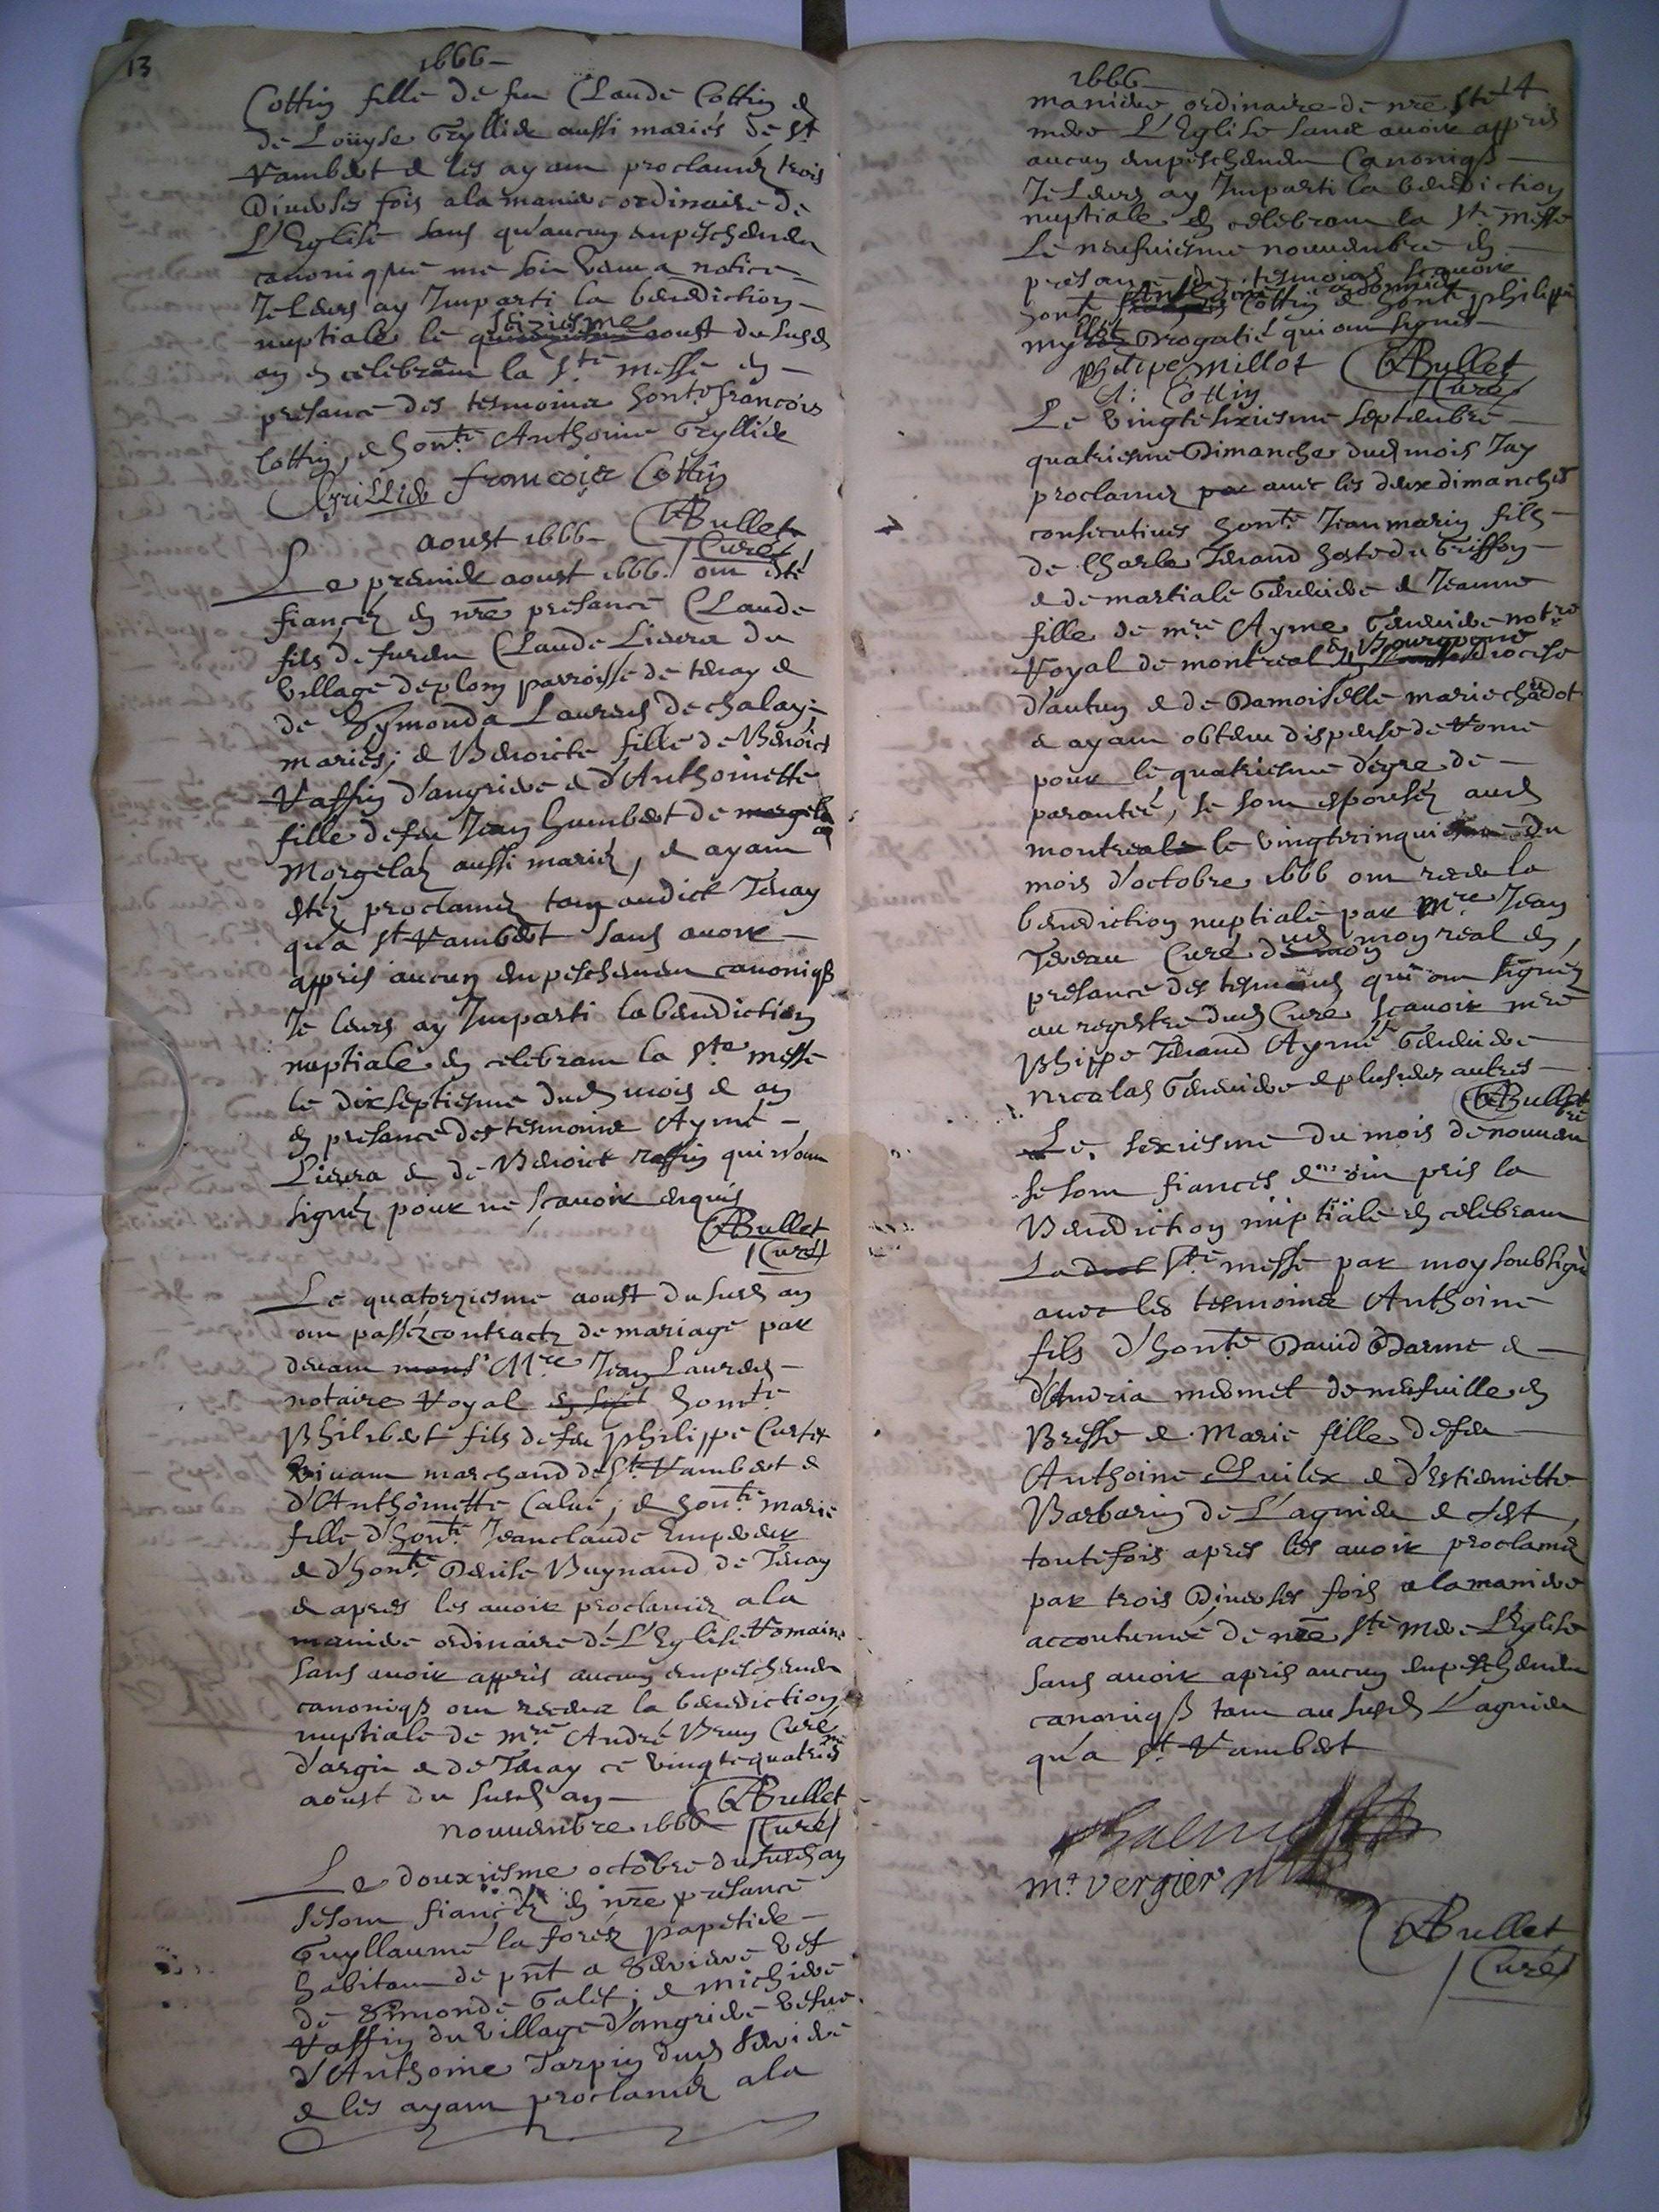 13
1666
Cottin fille de feu Claude Cottin &
de Loüyse Gryllier aussi mariés de st
Rambert & les ayant proclamez trois
diverses fois ala maniere ordinaire de
L'Eglise sans qu'aucun enpeschement
canonique me soit venu a notice
Je leurs ay Imparti la benediction
nuptiale le seiziesme aoust du susd
an en celebrant la ste messe en
presance des tesmoins hontē françois
Cottin, & hontē Anthoine Gryllier
Grillier françois Cottin
ABullet
Curé
aoust 1666
Le premier aoust 1666. ont esté
fiancez en nrē presance Claude
fils de furent Claude Lievra du
village deplom parroisse de tenay &
de Symonda Laurens de chaley
mariés; & Benoicte fille de Benoict
Raffin d'angriere & d'Anthoinette
fille defeu Jean humbert de
Morgelaz aussi mariez, & ayant
estéz proclamez tant audict Tenay
qu'a st Rambert sans avoir
appris aucun enpeschement canoniqß
Je leurs ay Imparti la benediction
nuptiale en celebrant la ste messe
le dixseptiesme dud mois & an
en presance des tesmoins Aymé
Lievra & de Benoict raffin qui n'ont
signéz pour ne sçavoir enquis
ABullet
Curé
Le quatorziesme aoust du susd an
ont passéz contractz de mariage par
devant Mre Jean Laurens
notaire Royal hontē
Philibert fils defeu philippe Curtet
vivant marchand de st Rambert &
d'Anthoinette Calue; & hontē marie
fille d'hontē Jeanclaude Empereur
& d'hontē Denise Buynand de Tenay
& apres les avoir proclamez ala
maniere ordinaire de L'Eglise Romaine
sans avoir appris aucun enpeschement
canoniqß ont receu la benediction
nuptiale de mre André Brun Curé
d'argis & de Tenay ce vingtequatriesme
aoust du susd an ABullet
novembre 1666 Curé
Le douxiesme octobre du susd an
sesont fiancéz en nrē presance
Guyllaume la foréz papetier
habitant de pnt a Serriere vef
de Simonde Galet; & michiere
Raffin du village d'angriere vefve
d'Anthoine Tarpin dud Serriere
& les ayant proclamez ala
14
1666
maniere ordinaire de nrē ste
mere L'Eglise sans avoir appris
aucun enpeschement Canoniqß
Je Leurs ay Imparti la benediction
nuptiale en celebrant la ste messe
Le neufviesme novembre en
presance des tesmoins scavoir
hontē Anthoine Cottin & hontē philippe
qui ont signés
philipe millot ABullet
A: Cottin Curé
Le vingtesixiesme septembre
quatriesme Dimanche dud mois Jay
proclamez avec les deux dimanches
consecutives hontē Jean marin fils
de Charle Tenand hoste du Griffon
& de martiale Gendiere & Jeanne
fille de mre Ayme Gendiere notre
Royal de montreal en Bourgogne diocese
d'autun & de Damoiselle marie chardot
& ayant obtenu dispense de Rome
pour le quatriesme degre de
parantée, se sont espouséz aud
montreal le vingtcinquiesme du
mois d'octobre 1666 ont receu la
benediction nuptiale par mre Jean
Curé dud moyreal en,
presance des tesmoins qui ont signéz
au registre dud Cure sçavoir mre
Phippe Tenand Aymé Gendiere
nicolas Gendiere & plusieurs autres
ABullet
Le. sexiesme du mois de novem
se sont fiances & ont pris la
Benediction nuptiale en celebrant
La ste messe par moy soubsigné
avec les tesmoins Anthoine
fils d'hontē David Darme &
d'Andria mermet de neufville en
Bresse & Marie fille defeu
Anthoine Quilex & d'Estiennette
Barbarin de L'agnieu & c'est,
toutefois apres les avoir proclamez
par trois diverses fois ala maniere
accoutumée de nrē ste mere L'Eglise
sans avoir apris aucun enpeschement
canoniqß tant au susd L'agnieu
qu'a st Rambert
mr vergier
ABullet
Curé